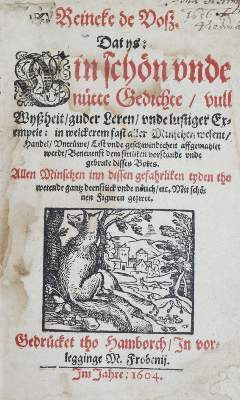 Reineke de Voß.
Dat ys:
Ein schön vnde
nütte Gedichte / vull
Wyßheit / guder Leren / vnde lustiger Ex-
empele: in welckerem fast aller Minschen wesent /
Handel / Vntruwe / List vnde geschwindicheit affgemahlet
werdt / Beneuenst dem sittliken vorstande vnde
gebruke disses Bokes.
Allen Minschen inn dissen gefahrliken tyden tho
wetende gantz deenstlick vnde nütte / etc. Mit schö-
nen Figuren geziret.
Gedrücket tho Hamborch / In vor-
legginge M. Frobenij.
Im Jahre: 1604.